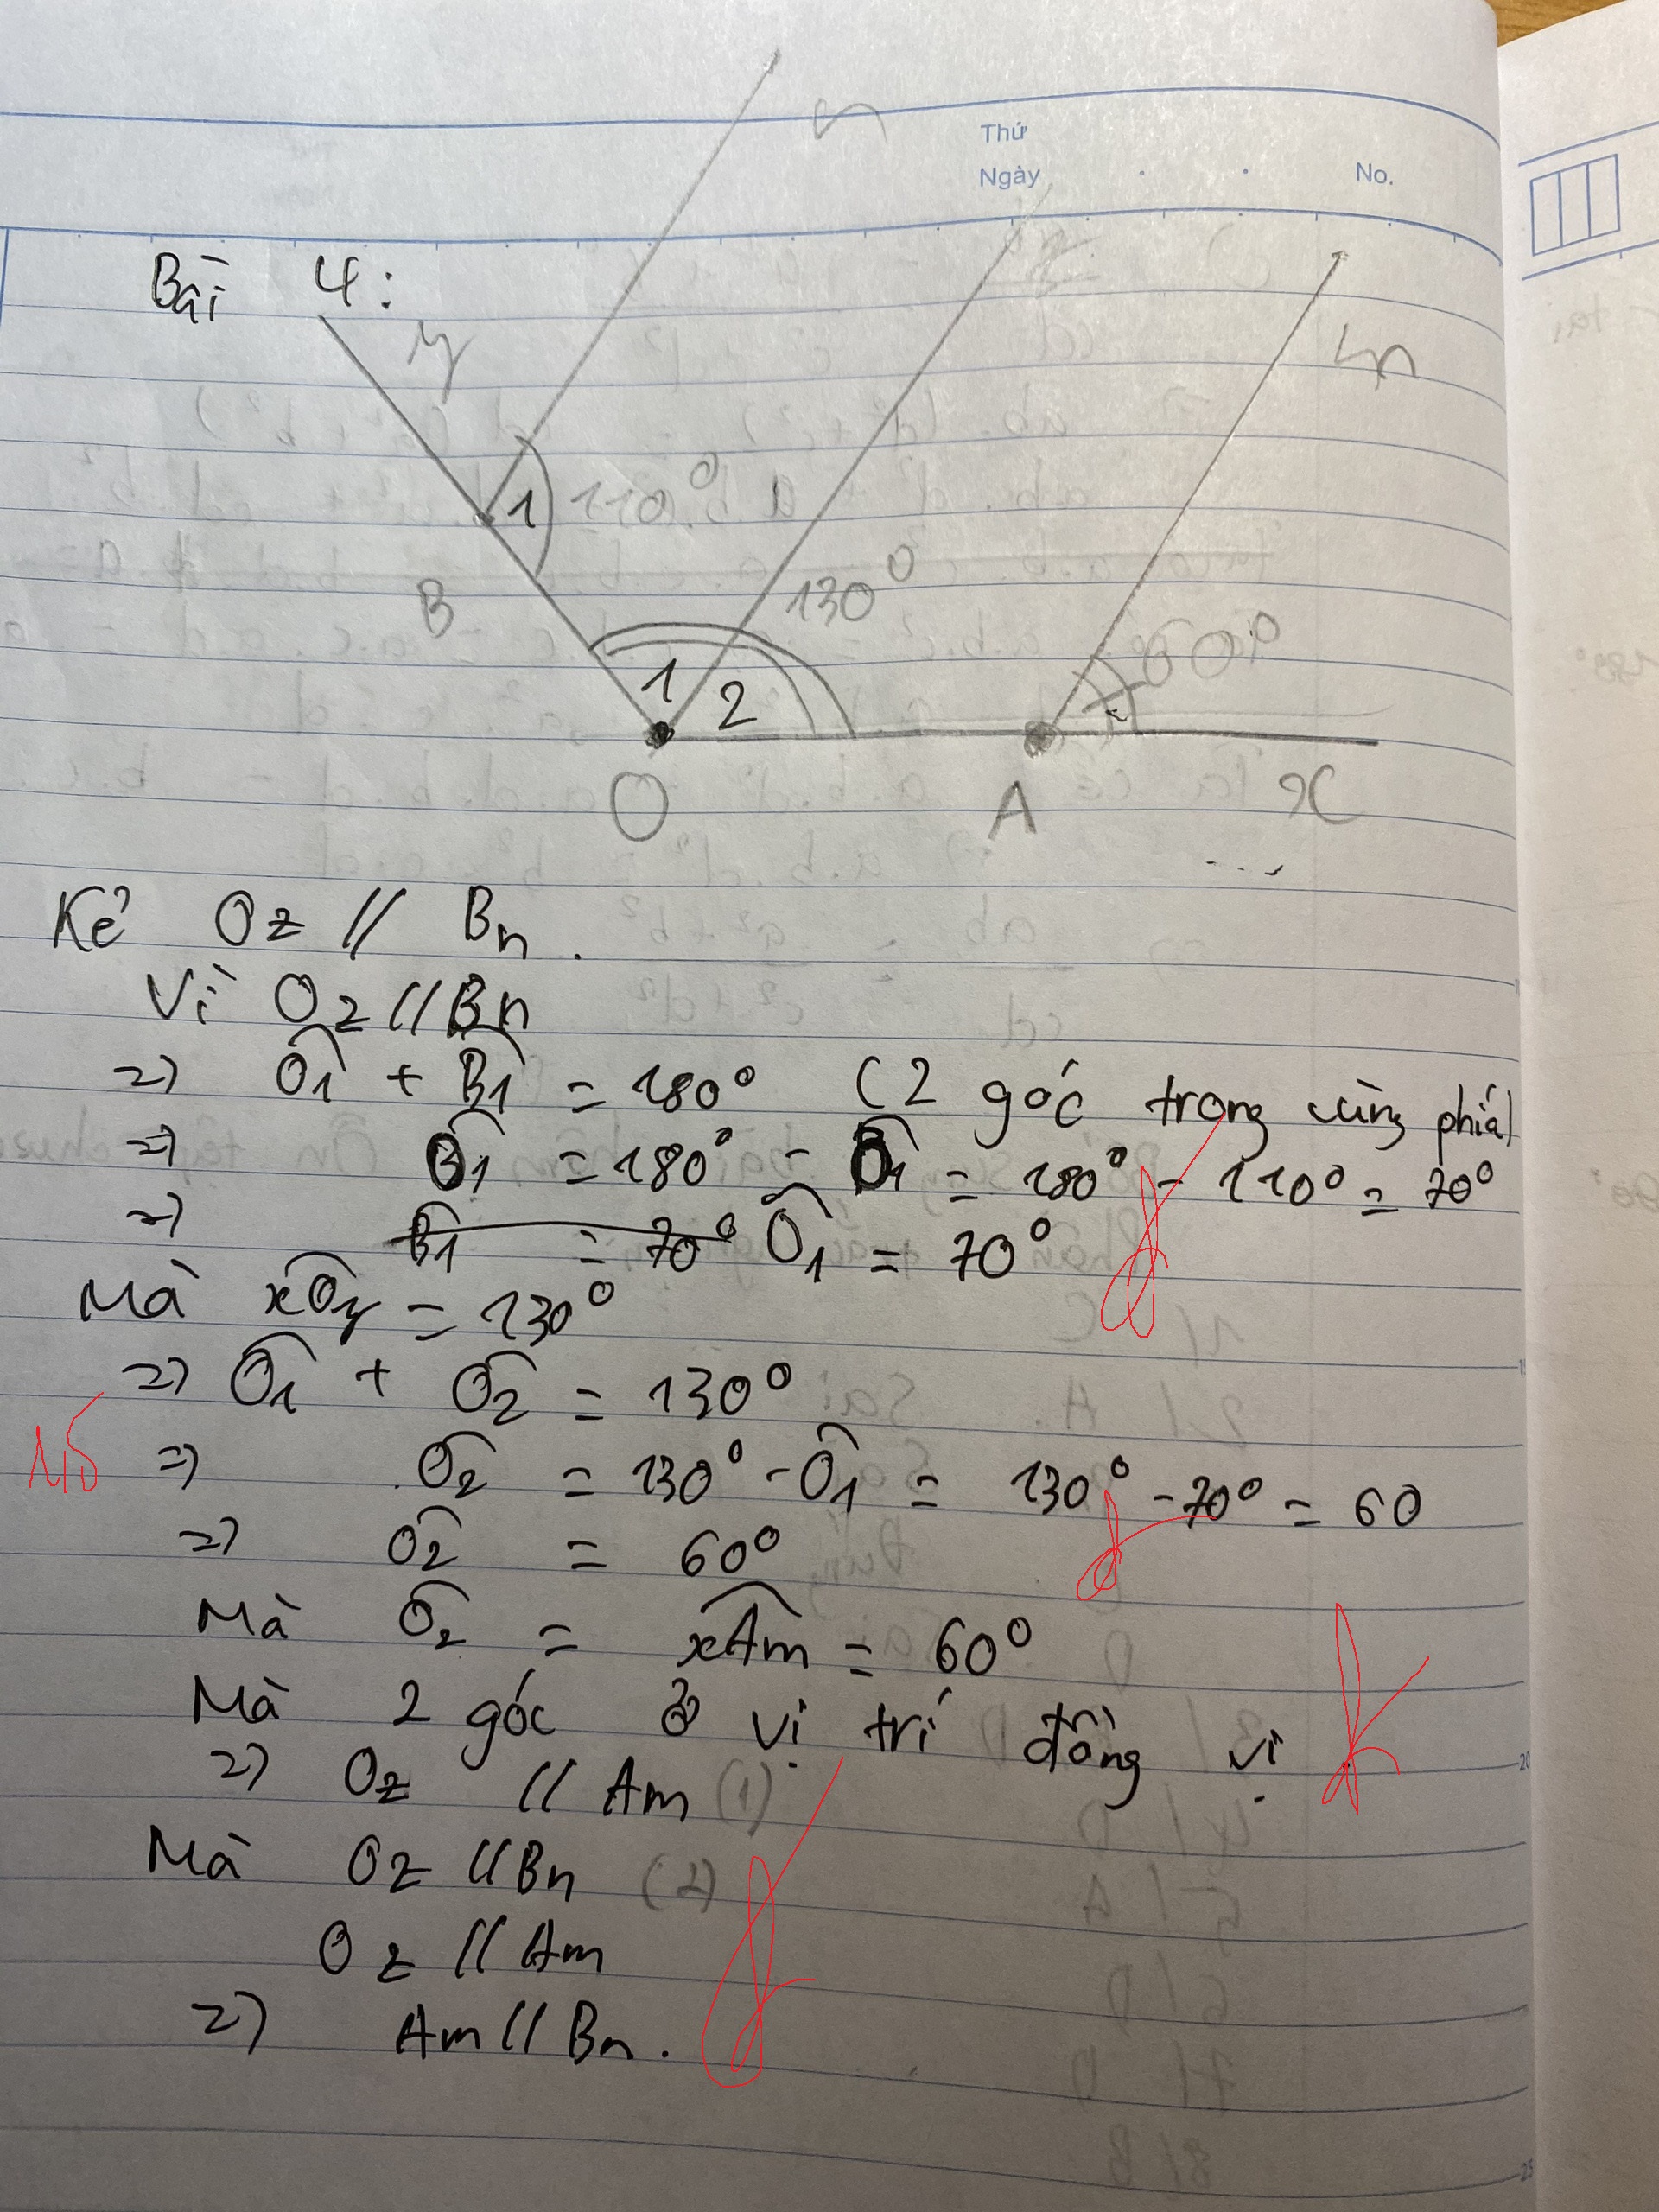 Thứ
Ngày
No.
Bài 4:
y
n
z
m
1
110°
B
130°
60°
1
2
O
A
x
Kẻ Oz // Bn.
Vì Oz // Bn
=> Ô1 + B̂1 = 180° (2 góc trong cùng phía)
=> Ô1 = 180° - B̂1 = 180° - 110° = 70°
=> B̂1 = 70° Ô1 = 70°
Mà xÔy = 130°
=> Ô1 + Ô2 = 130°
=> Ô2 = 130° - Ô1 = 130° - 70° = 60
=> Ô2 = 60°
Mà Ô2 = xÂm = 60°
Mà 2 góc ở vị trí đồng vị
=> Oz // Am (1)
Mà Oz // Bn (2)
Oz // Am
=> Am // Bn.